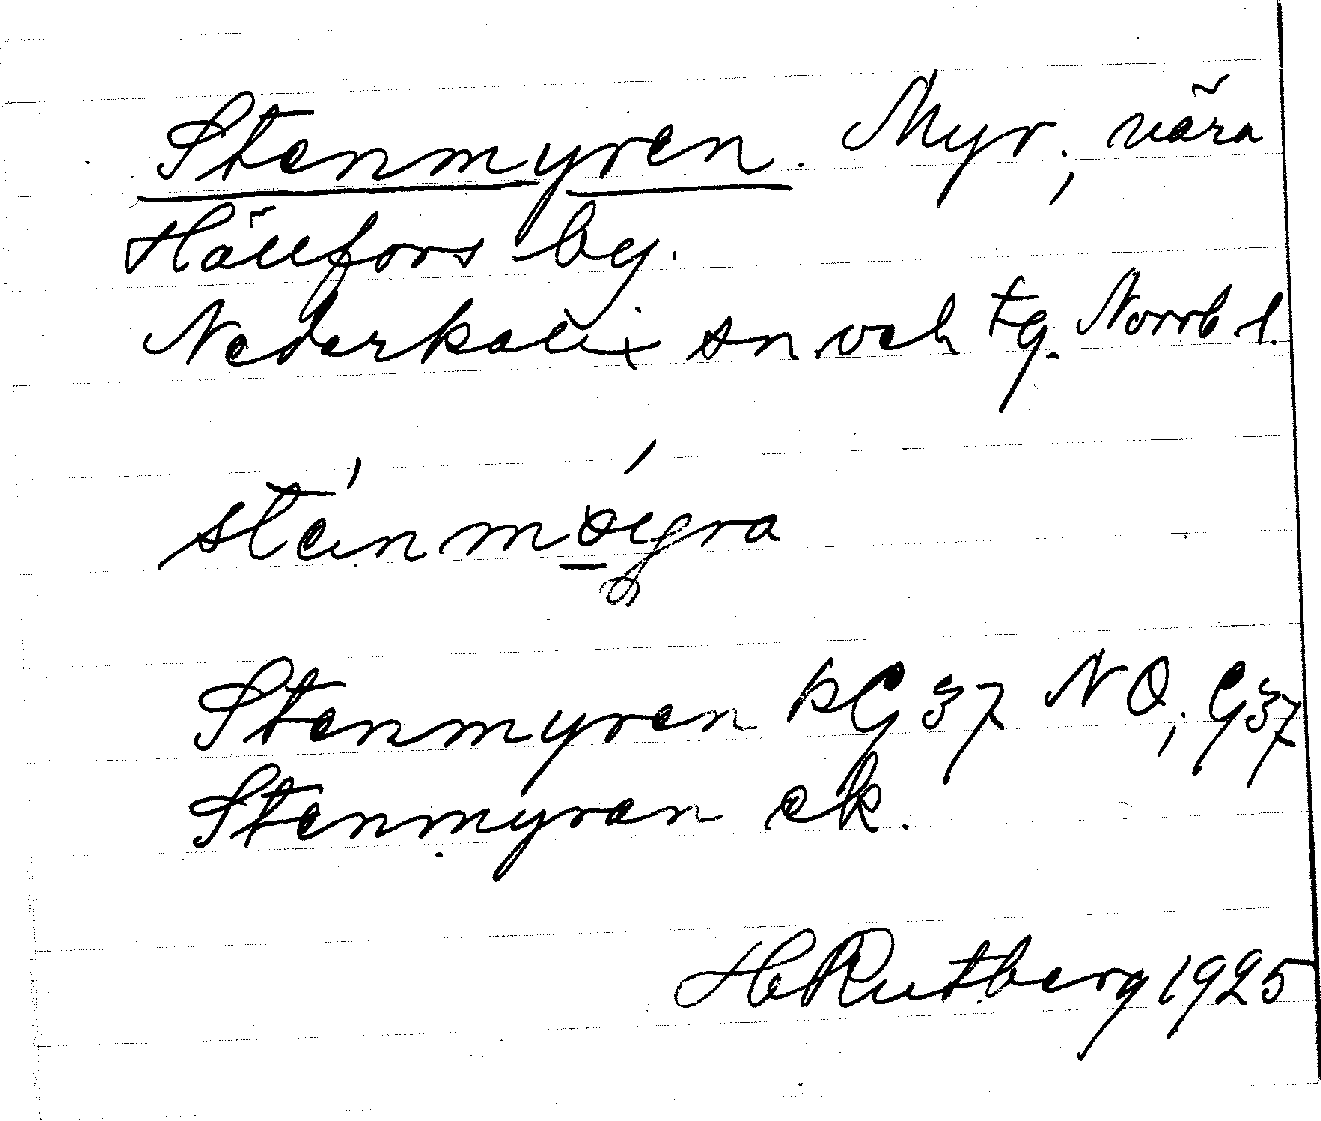 Stenmyren. Myr; nära
Hällfors by.
Nederkalix sn och tg. Norrb l.
stei'nmø̱y'ra
Stenmyren kG 37 NO; G37
Stenmyran ek.
HRutberg 1925